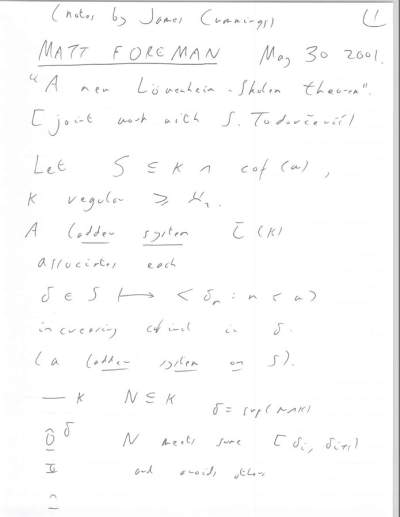 (notes by James Cummings) 1
MATT FOREMAN May 30 2001.
"A new Löwenheim-Skolem theorem".
[joint work with S. Todorčević]
Let S ⊆ κ ∩ cof(ω),
κ regular ≥ ℵ₂.
A ladder system [(κ)
associates each
δ ∈ S ⟼ < δₙ : n < ω >
increasing cofinal in δ.
(a ladder system on S).
— κ N ⊆ κ
δ = sup(N∩κ)
δ N meets some [δᵢ, δᵢ₊₁)
and avoids others